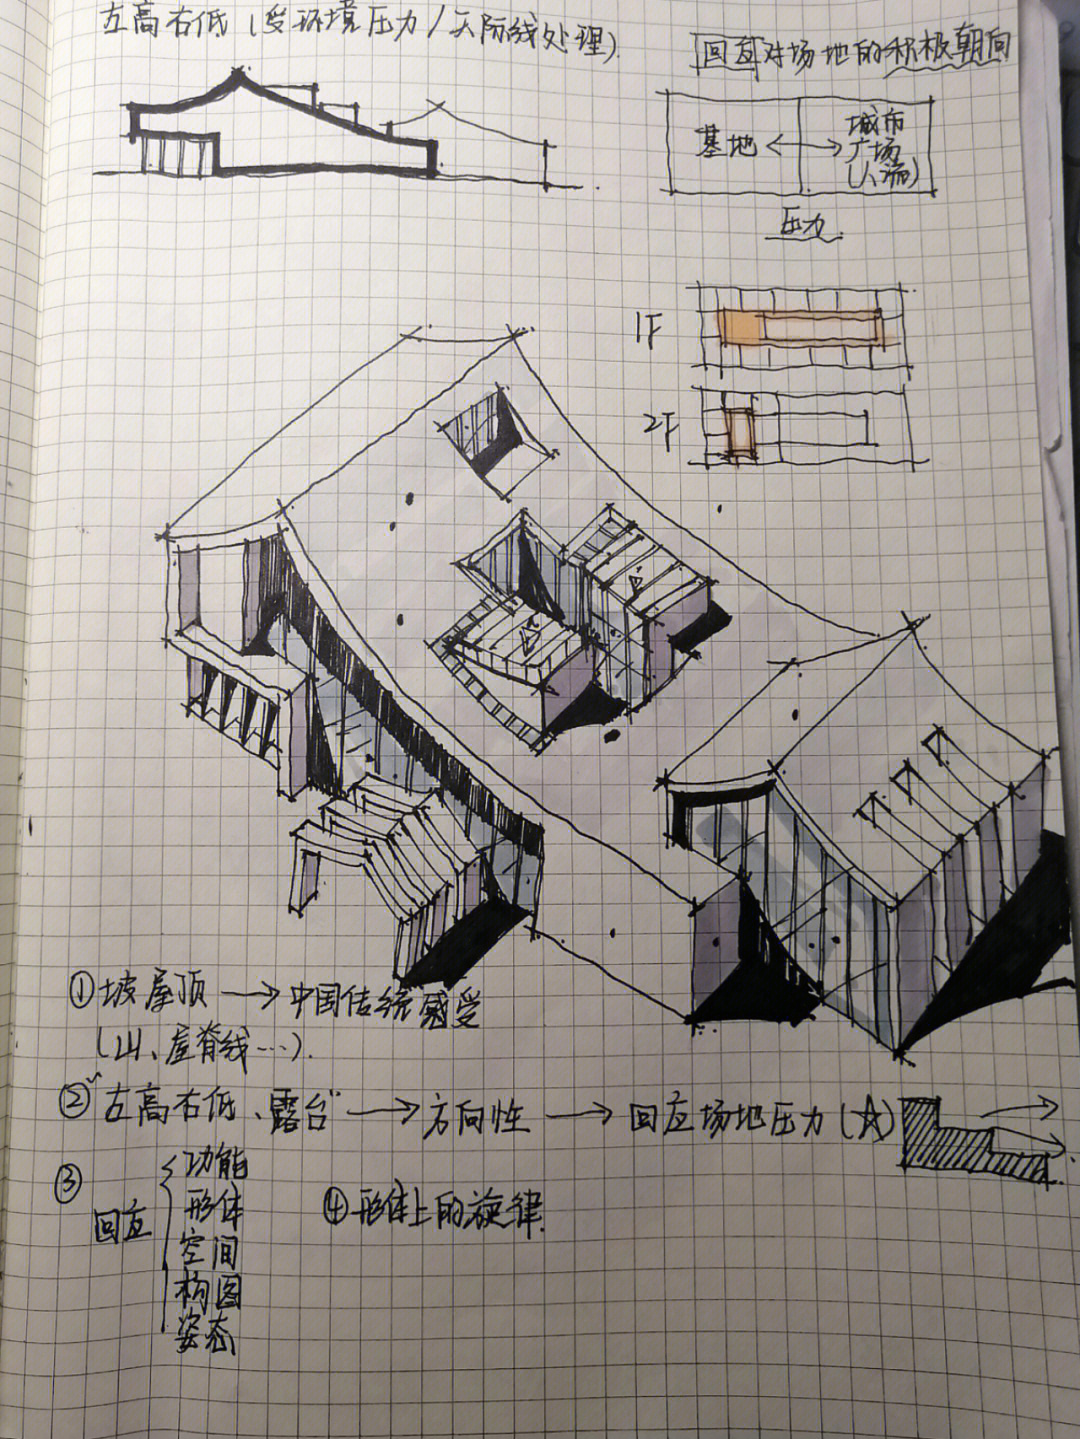 左高右低(受环境压力/天际线处理).
回应对场地的积极朝向
基地
城市
广场
(人流)
压力.
1F
2F
①坡屋顶→中国传统感受
(山、屋脊线…).
②"左高右低、露台"→方向性→回应场地压力(☆)
③
回应
功能
形体
空间
构图
姿态
④形体上的旋律.